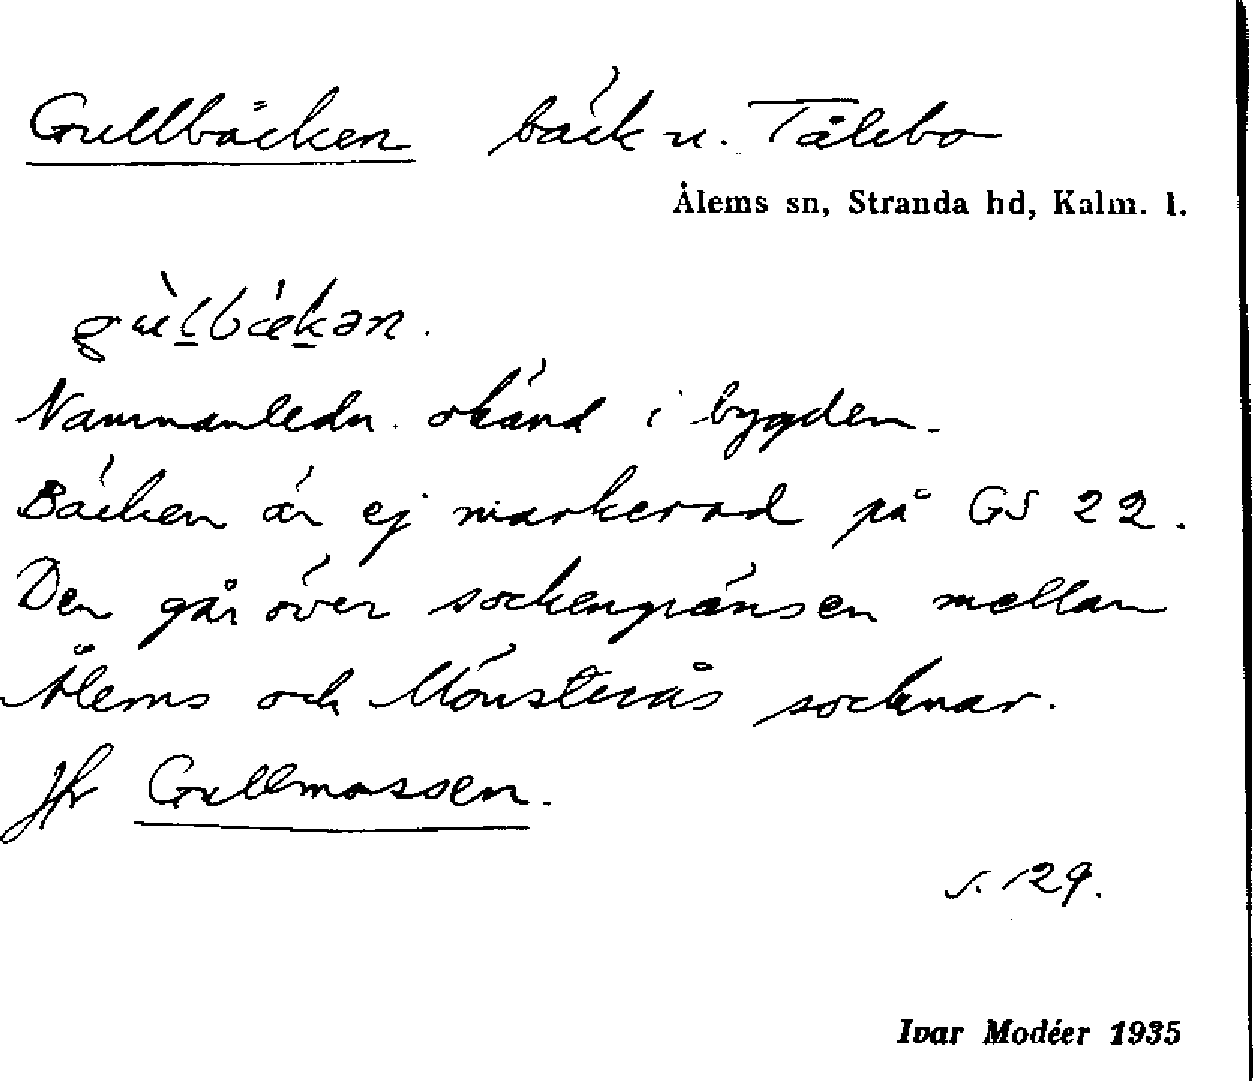 Gullbäcken bäck u. Tålebo
Ålems sn, Stranda hd, Kalm. l.
Namnanledn. okänd i bygden.
Bäcken är ej markerad på GS 22.
Den går över sockengränsen mellan
Ålems och Mönsterås socknar.
Jfr Gullmossen.
s. 129.
Ivar Modéer 1935